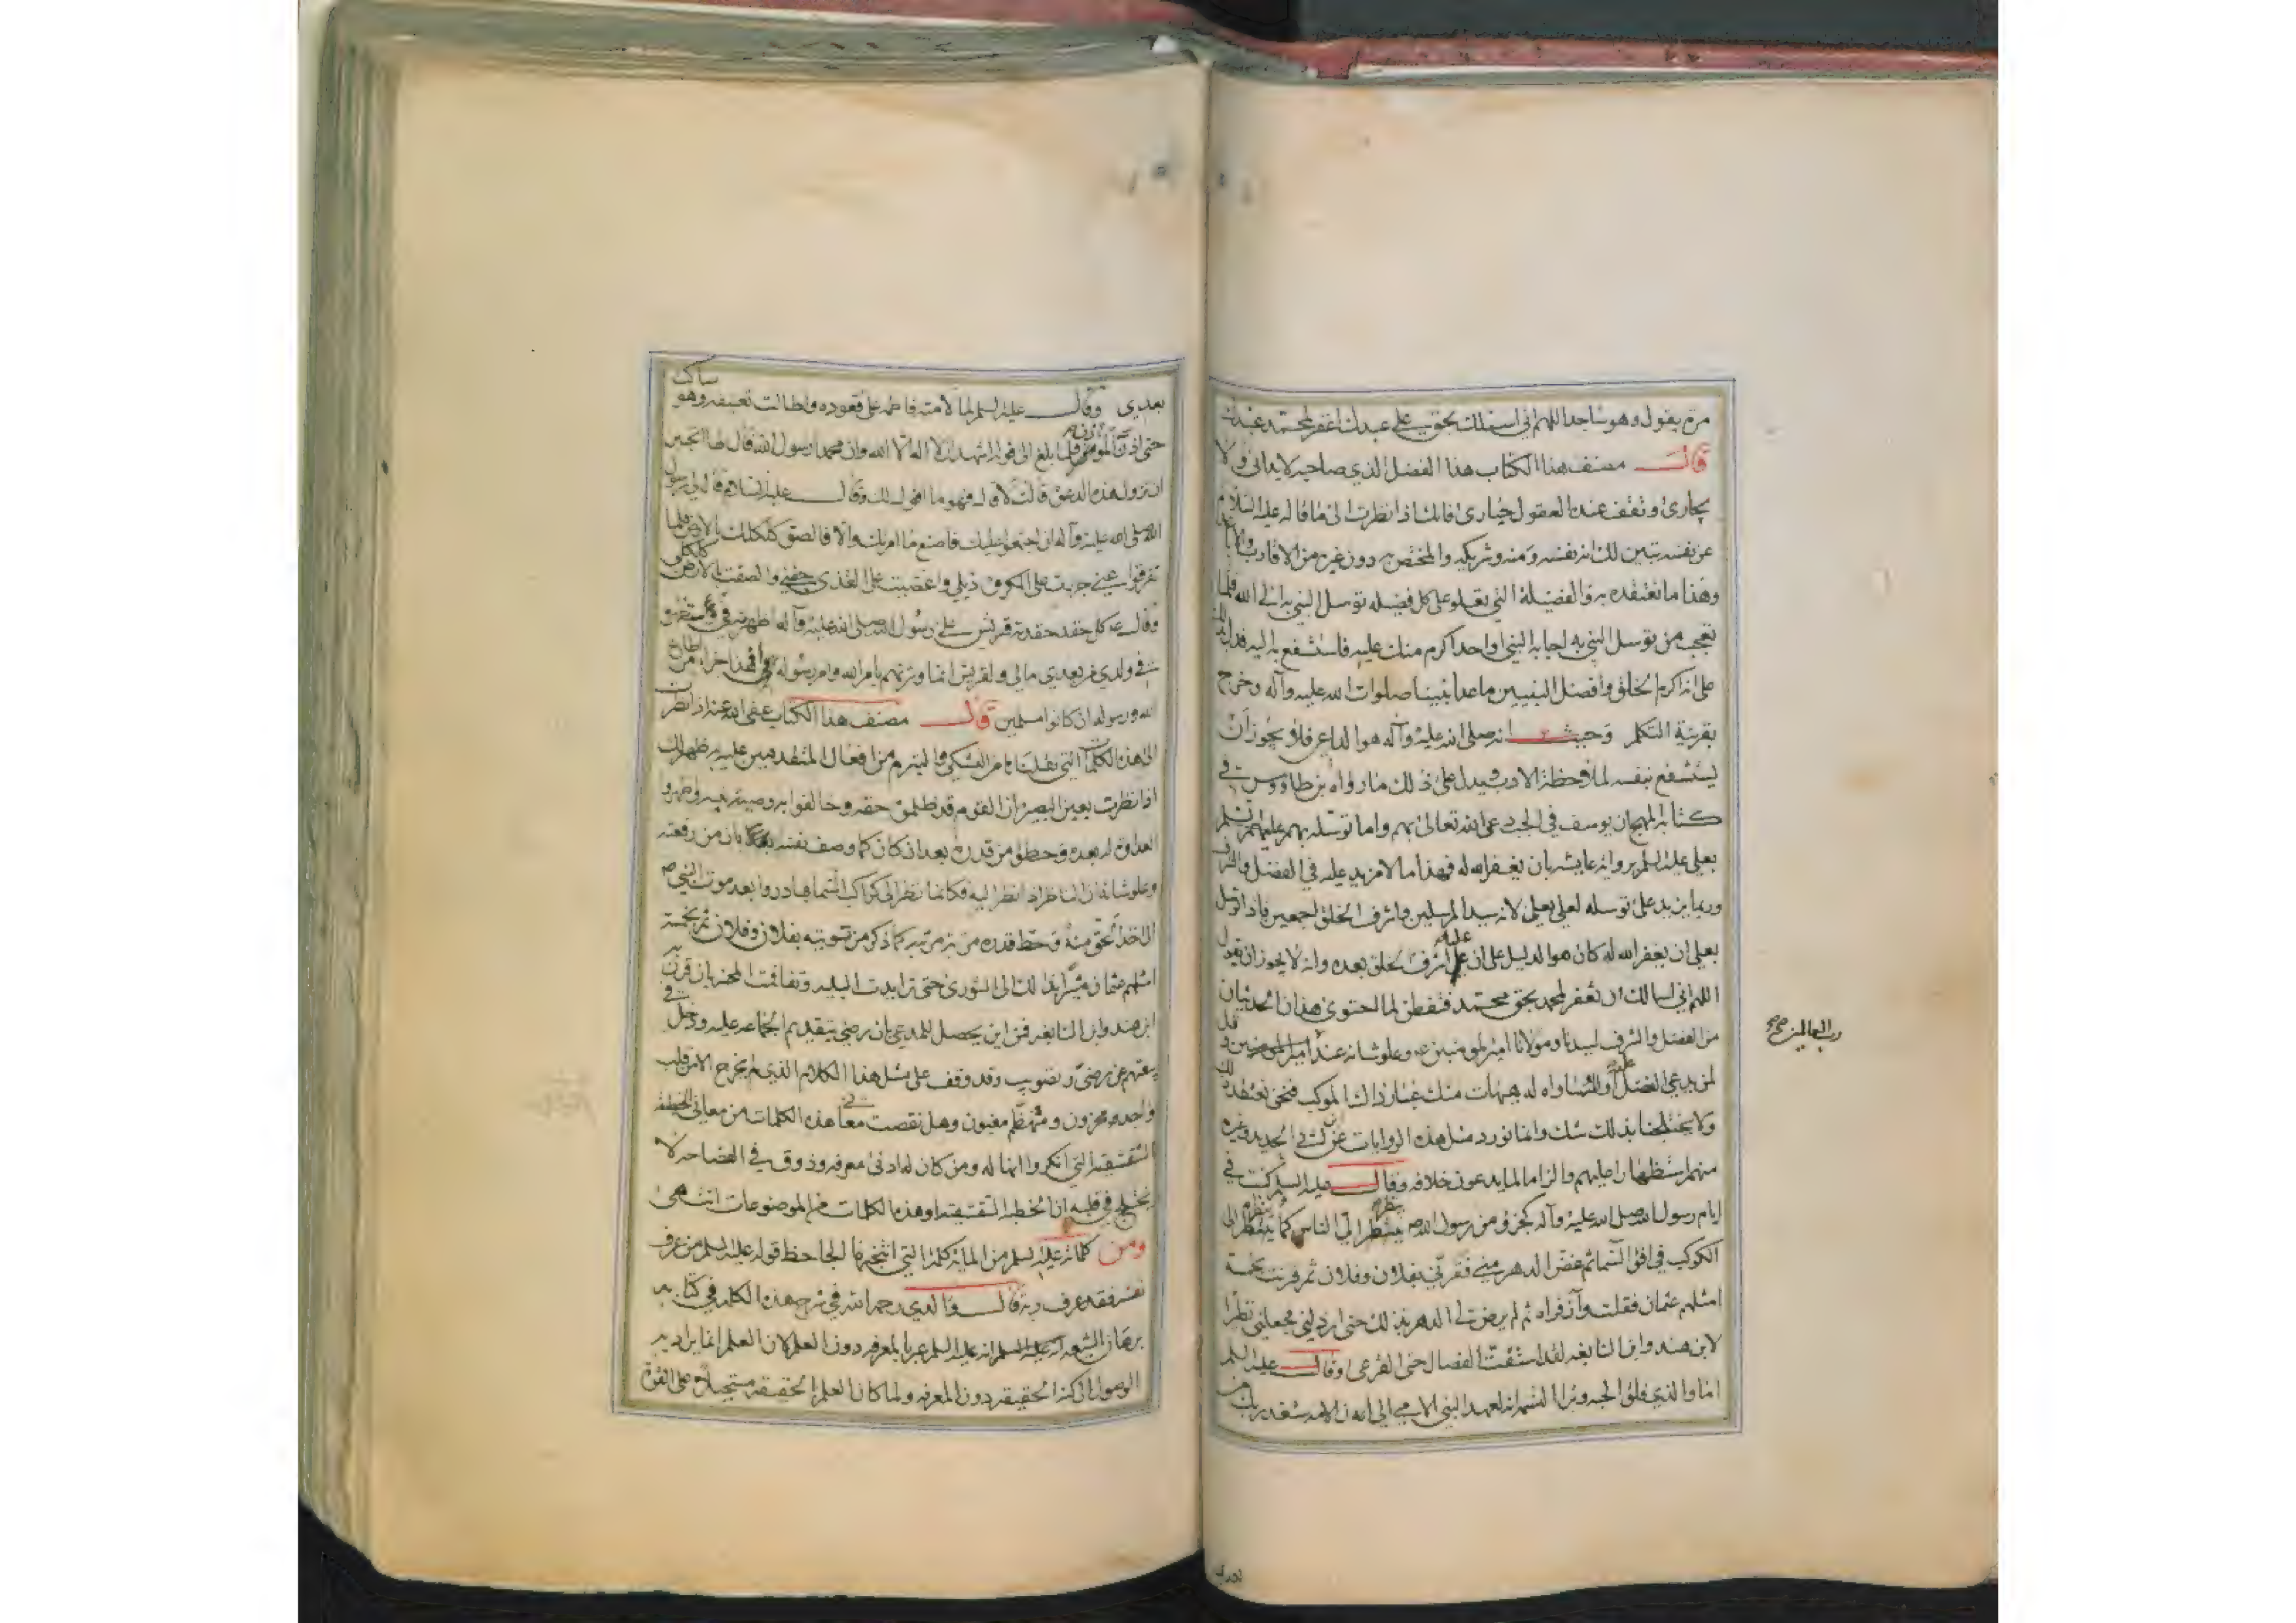 مرة يقول وهو ساجدا اللهم اني اسئلك بحق علي عبدك اغفر لمحمد عبدك
قال مصنف هذا الكتاب هذا الفضل الذي صاحبه لا يداني ولا
يجارى وتقف عنده العقول حيارى فانك اذا نظرت الى ما قاله عليه السلام
عن نفسه تبين لك انه نفسه ومنه وشريكه والمختص به دون غيره من الاقارب
وهذا ما نعتقده به والفضيلة التي تعلو على كل فضيله توسل النبي به الى الله فلما
تعجب من توسل النبي به اجابه النبي اواحد اكرم منك عليه فاستشفع به اليه فدل
على انه اكرم الخلق وافضل النبيين ما عدا نبينا صلوات الله عليه وآله وخرج
بقرينة التكلم وحيث انه صلى الله عليه وآله هو الداعي فلا يجوز ان
يستشفع بنفسه لملاحظة الادب ويدل على ذلك ما رواه بن طاووس في
كتابه المهج ان يوسف في الجب دعى الله تعالى بهم واما توسله بهم عليهم
بعلي عليه السلم برواية عايشه بان يغفر الله له فهذا ما لا مزيد عليه في الفضل والشرف
وربما يزيد على توسله لعلي بعلي لانه سيد المرسلين واشرف الخلق اجمعين فاذا توسل
بعلي ان يغفر الله له كان هو الدليل على ان علي اشرف الخلق بعده وانه لا يجوز ان يقول
اللهم اني اسالك ان تغفر لمحمد بحق محمد فتفطن لما احتوى هذان الحديثان
من الفضل والشرف لسيدنا ومولانا امير المومنين ع وعلو شانه عند
رب العالمين صح
لمن يدعي الفضل عليه او المساواه له هيهات منك غبار ذاك الموكب فنحن نعتقد ذلك
ولا يختلجنا بذلك شك وانما نورد مثل هذه الروايات عن ابن ابي الحديد وغيره
منهم استظهارا عليهم والزاما لما يدعون خلافه وقال عليه السلم كنت في
ايام رسول الله صلى الله عليه وآله كجزؤ من رسول الله ص ينظر الي الناس كما ينظر الى
الكوكب في افق السما ثم غض الدهر مني فقرني بفلان وفلان ثم قرنت بخمسة
امثلهم عثمان فقلت وآذفراه ثم لم يرض لي الدهر بذلك حتى ارذلني فجعلني نظرا
لابن هند وابن النابغه لقد استنت الفصال حتى القرعى وقال عليه السلم
اما والذي فلق الحبه وبرا النسمه انه لعهد النبي الامي الي ان الامه ستغدر بك من
بعدي وقال عليه السلم لما لامته فاطمه على قعوده واطالت تعنيفه وهو ساكت
حتى اذن المؤذن فلما بلغ الى قوله اشهد ان لا اله الا الله وان محمدا رسول الله قال لها اتحبين
ان تزول هذه الدعوة قالت لا قال فهو ما اقول لك وقال عليه السلام قال لي رسول
الله صلى الله عليه وآله ان اجتمعوا عليك فاصنع ما امرتك والا فالصق كلكلك بالارض فلما
تفرقوا عني جررت على المكروه ذيلي واغضيت على القذى جفني والصقت بالارض كلكلي
وقال ع كل حقد حقدته قريش على رسول الله صلى الله عليه وآله اظهرته في وستظهره
في ولدي من بعدي مالي ولقريش انما وترتهم بامر الله وامر رسوله افهذا جزاء من اطاع
الله ورسوله ان كانوا مسلمين قال مصنف هذا الكتاب عفى الله عنه اذا نظرت
الى هذه الكلمات التي نقلناها من التشكي والتبرم من افعال المتقدمين عليه يظهر لك
اذا نظرت بعين البصيرة ان القوم قد ظلموه حقه وخالفوا به وصية نبيه واظهروا
العداوة له بعده وحطوا من قدره بعد ان كان كما وصف نفسه بان من رفعته
وعلو شانه ان الناظر اذا نظر اليه فكانما نظر الى كواكب السما فبادروا بعد موت النبي ص
الى اخذ حقه منه وحط قدره من مرتبته كما ذكر من تسويته بفلان وفلان ثم بخمسة
امثلهم عثمان مشيرا بذلك الى الشورى حتى تزايدت البليه وتفاقمت المحنه بان قرن به
ابن هند وابن النابغه فمن اين يحصل للمدعي بان رضي بتقديم الجماعه عليه ودخل في
بيعتهم عن رضى وتصويب وقد وقف على مثل هذا الكلام الذي لم يخرج الا من قلب
واجد محزون ومتظلم مغبون وهل نقصت معاني هذه الكلمات من معاني الخطبة
الشقشقية التي انكروا انها له ومن كان له ادنى معرفه وذوق في الفصاحه لا
يختلج في قلبه ان الخطبه الشقشقيه او هذه الكلمات من الموضوعات انتهى
ومن كلماته عليه السلم من المايه كلمة التي انتخبها الجاحظ قوله عليه السلم من عرف
نفسه فقد عرف ربه قال والدي رحمه الله في شرح هذه الكلمه في كتابه
برهان الشيعه انه عليه السلم عبر بالمعرفه دون العلم لان العلم انما يراد به
الوصول الى كنه الحقيقه دون المعرفه ولما كان العلم بالحقيقه مستحيلا على القوة